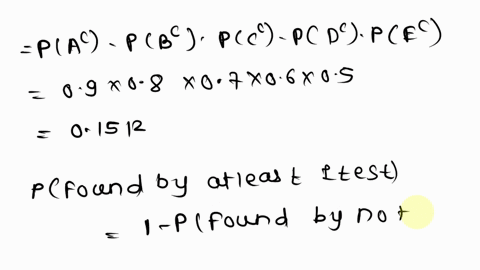 = P(Aᶜ) - P(Bᶜ). P(Cᶜ) - P(Dᶜ). P(Eᶜ)
= 0.9 x 0.8 x 0.7 x 0.6 x 0.5
= 0.1512
P(found by atleast 1test)
= 1-P(found by not